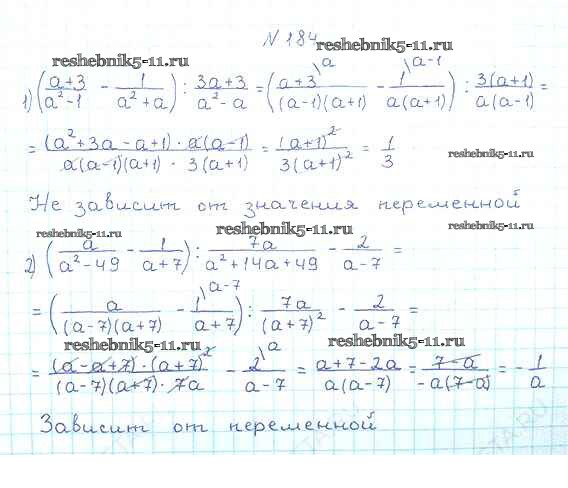 N 184
reshebnik5-11.ru reshebnik5-11.ru
1) ((a+3)/(a²-1) - 1/(a²+a)) : (3a+3)/(a²-a) = ((a+3)/((a-1)(a+1)) \a - 1/(a(a+1)) \a-1) : 3(a+1)/(a(a-1)) =
= (a²+3a-a+1)·a(a-1)/(a(a-1)(a+1)·3(a+1)) = (a+1)²/(3(a+1)²) = 1/3
reshebnik5-11.ru
Не зависит от значения переменной
reshebnik5-11.ru reshebnik5-11.ru reshebnik5-11.ru
2) (a/(a²-49) - 1/(a+7)) : 7a/(a²+14a+49) - 2/(a-7) =
= (a/((a-7)(a+7)) - 1/(a+7) \a-7) : 7a/(a+7)² - 2/(a-7) =
reshebnik5-11.ru reshebnik5-11.ru
= (a-a+7)·(a+7)²/((a-7)(a+7)·7a) - 2/(a-7) \a = (a+7-2a)/(a(a-7)) = (7-a)/(-a(7-a)) = -1/a
Зависит от переменной